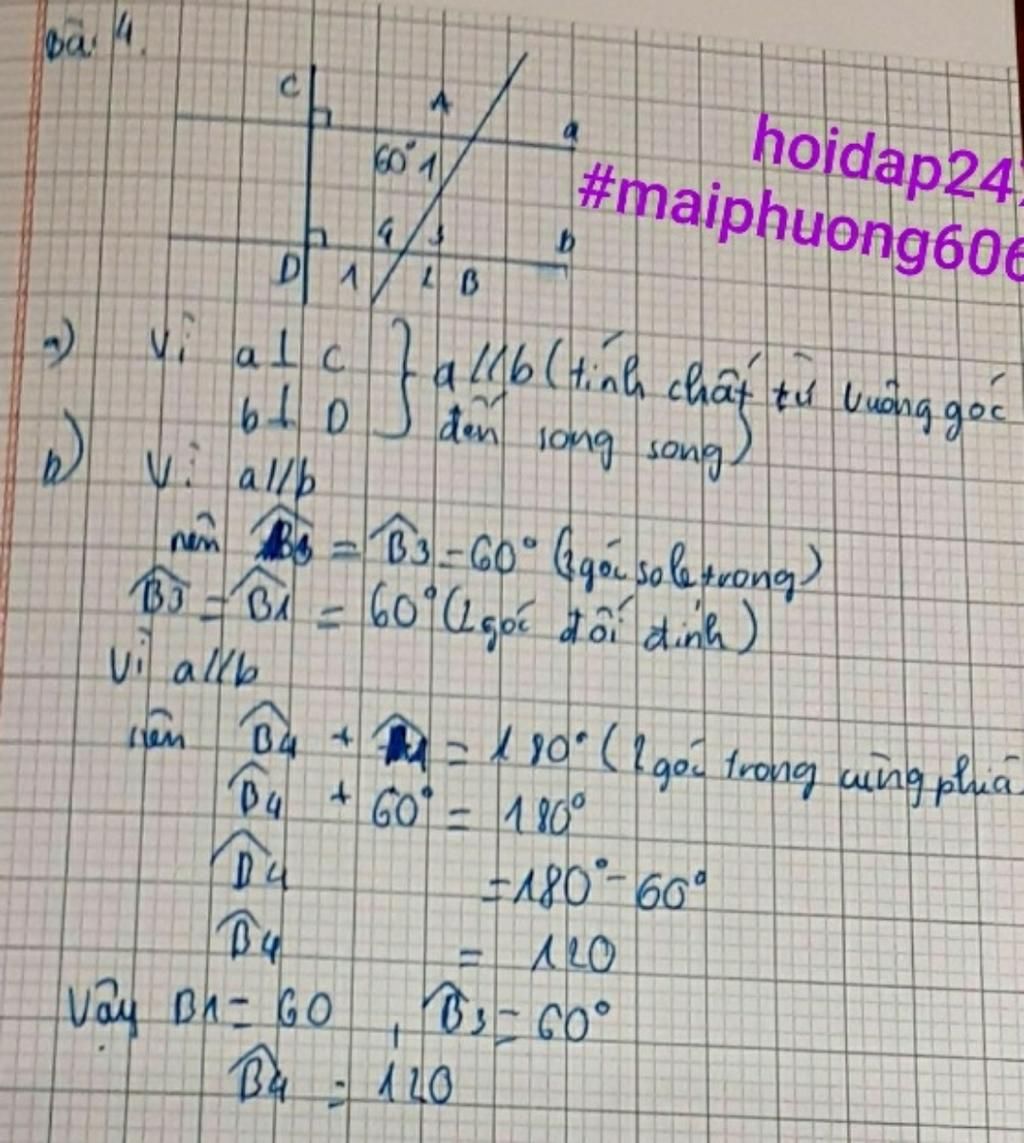 Bài 4.
C
A
a
60° 1
4 3
b
D 1 2 B
hoidap24
#maiphuong606
a) Vì a⊥ C } a//b (tính chất từ vuông góc
b⊥ D đến song song)
b) Vì a//b
nên = B̂3 = 60° (2 góc so le trong)
B̂3 = B̂1 = 60° (2 góc đối đỉnh)
Vì a//b
nên B̂4 + Â1 = 180° (2 góc trong cùng phía
B̂4 + 60° = 180°
B̂4 = 180° - 60°
B̂4 = 120
Vậy B1 = 60 , B̂3 = 60°
B̂4 = 120